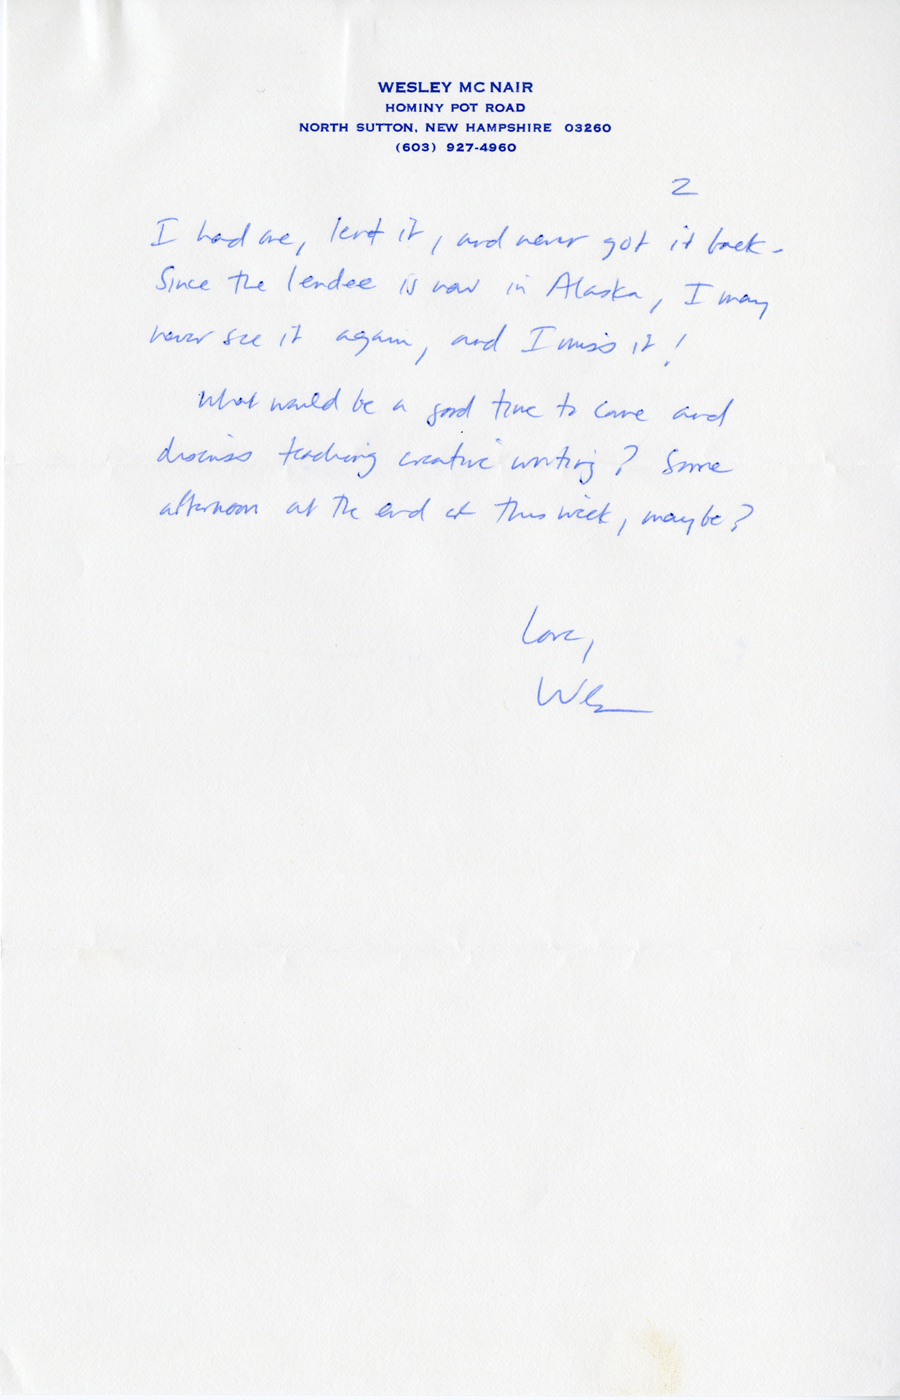 WESLEY MC NAIR
HOMINY POT ROAD
NORTH SUTTON, NEW HAMPSHIRE 03260
(603) 927-4960
2
I had one, lent it, and never got it back.
Since the lendee is now in Alaska, I may
never see it again, and I miss it!
What would be a good time to come and
discuss teaching creative writing? Some
afternoon at the end of this week, maybe?
Love,
Wes